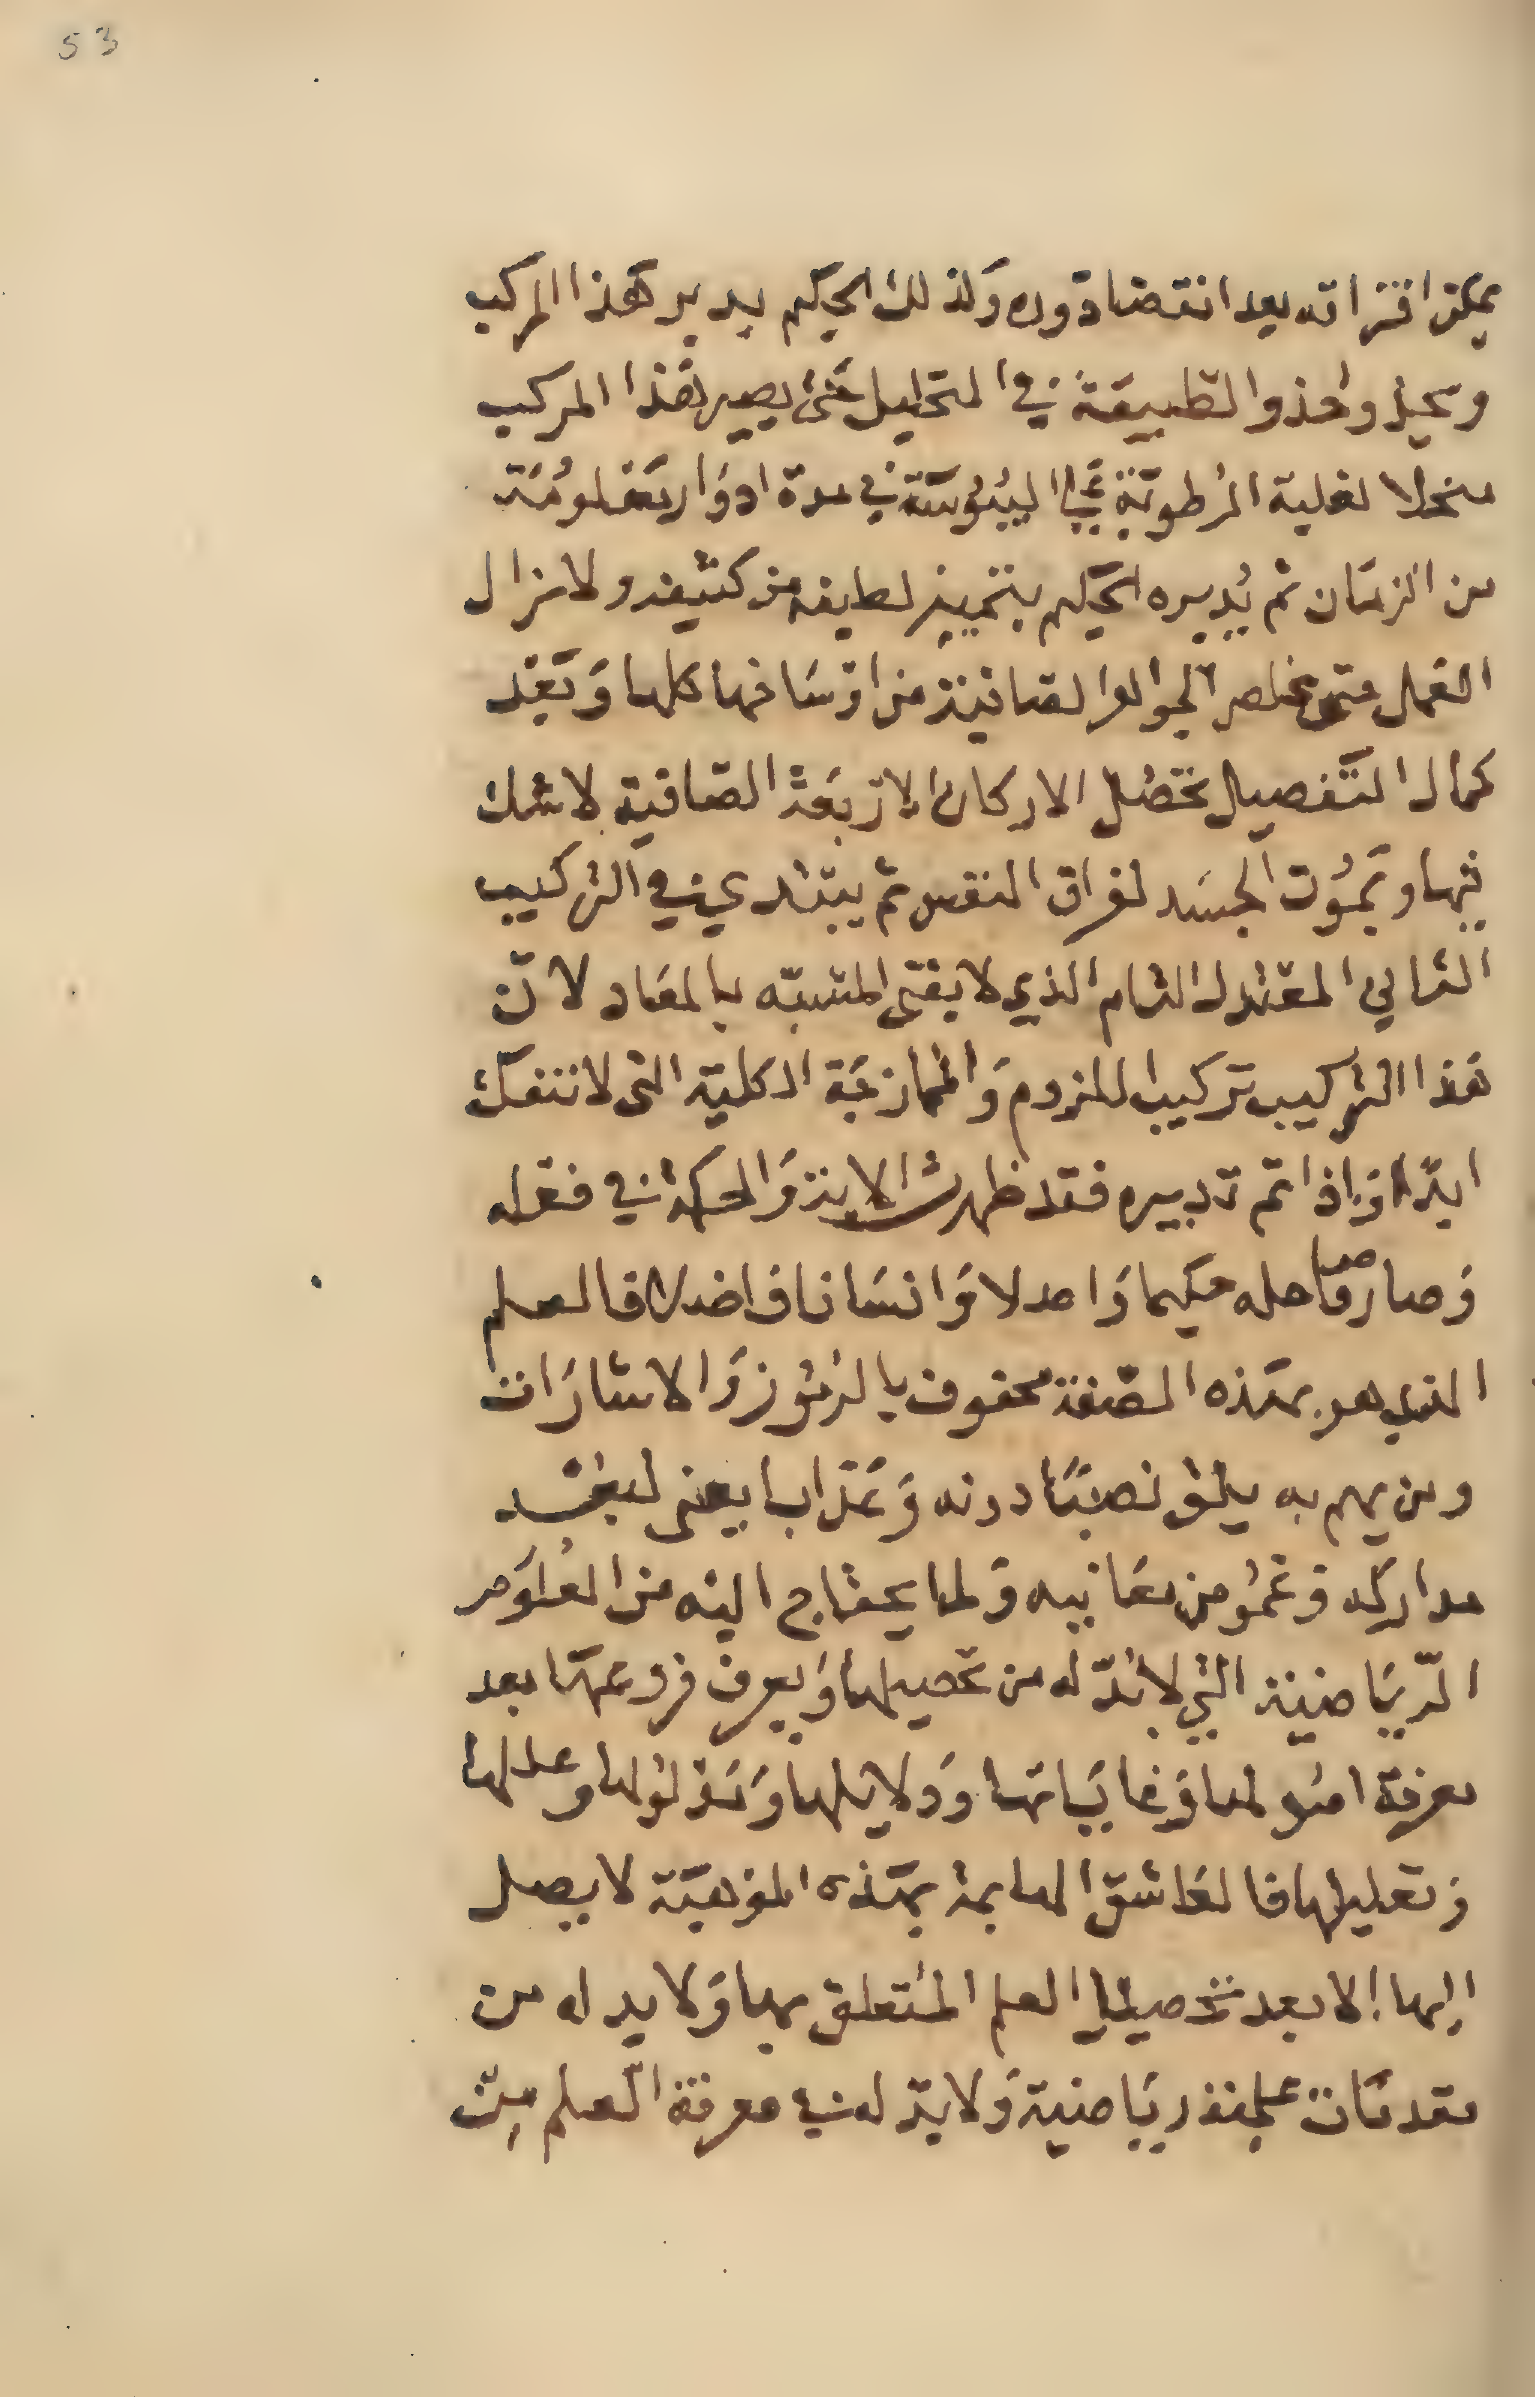 53
يمكن افتراقه بعد انقضا دوره وكذلك الحكيم يدبر هذا المركب
ويحيل واخذوا الطبيعة في التحليل حتى يصير هذا المركب
منحلا لغلبة الرطوبة على اليبوسة في مدة ادوار معلومة
من الزمان ثم يدبره الحكيم بتمييز لطيفه من كثيفه ولا يزال
العمل حتى يخلص الجواهر الصافية من اوساخها كلها وبعد
كمال التفصيل تحصل الاركان الاربعة الصافية لا شك
فيها ويموت الجسد لفراق النفس ثم يبتدي في التركيب
الثاني المعتدل التام الذي لا يفنى المشبه بالمعاد لان
هذا التركيب تركيب اللزوم والممازجة الكلية التي لا تنفك
ابدا واذا تم تدبيره فقد ظهرت الاية والحكمة في فعله
وصار فاعله حكيما واصلا وانسانا فاضلا فالعلم
الذي هو بهذه الصفة محفوف بالرموز والاشارات
ومن يهم به يلق نصبا دونه وعذابا يعنى لبعد
مداركه وغموض معانيه ولما يحتاج اليه من العلوم
الرياضية التي لا بد له من تحصيلها ويعرف فروعها بعد
معرفة اصولها وغاياتها ودلايلها ومدلولها وعللها
وتعليلها فالعاشق الهايم بهذه الموهبة لا يصل
اليها الا بعد تحصيل العلم المتعلق بها ولا بد له من
مقدمات علمية رياضية ولا بد له في معرفة العلم من